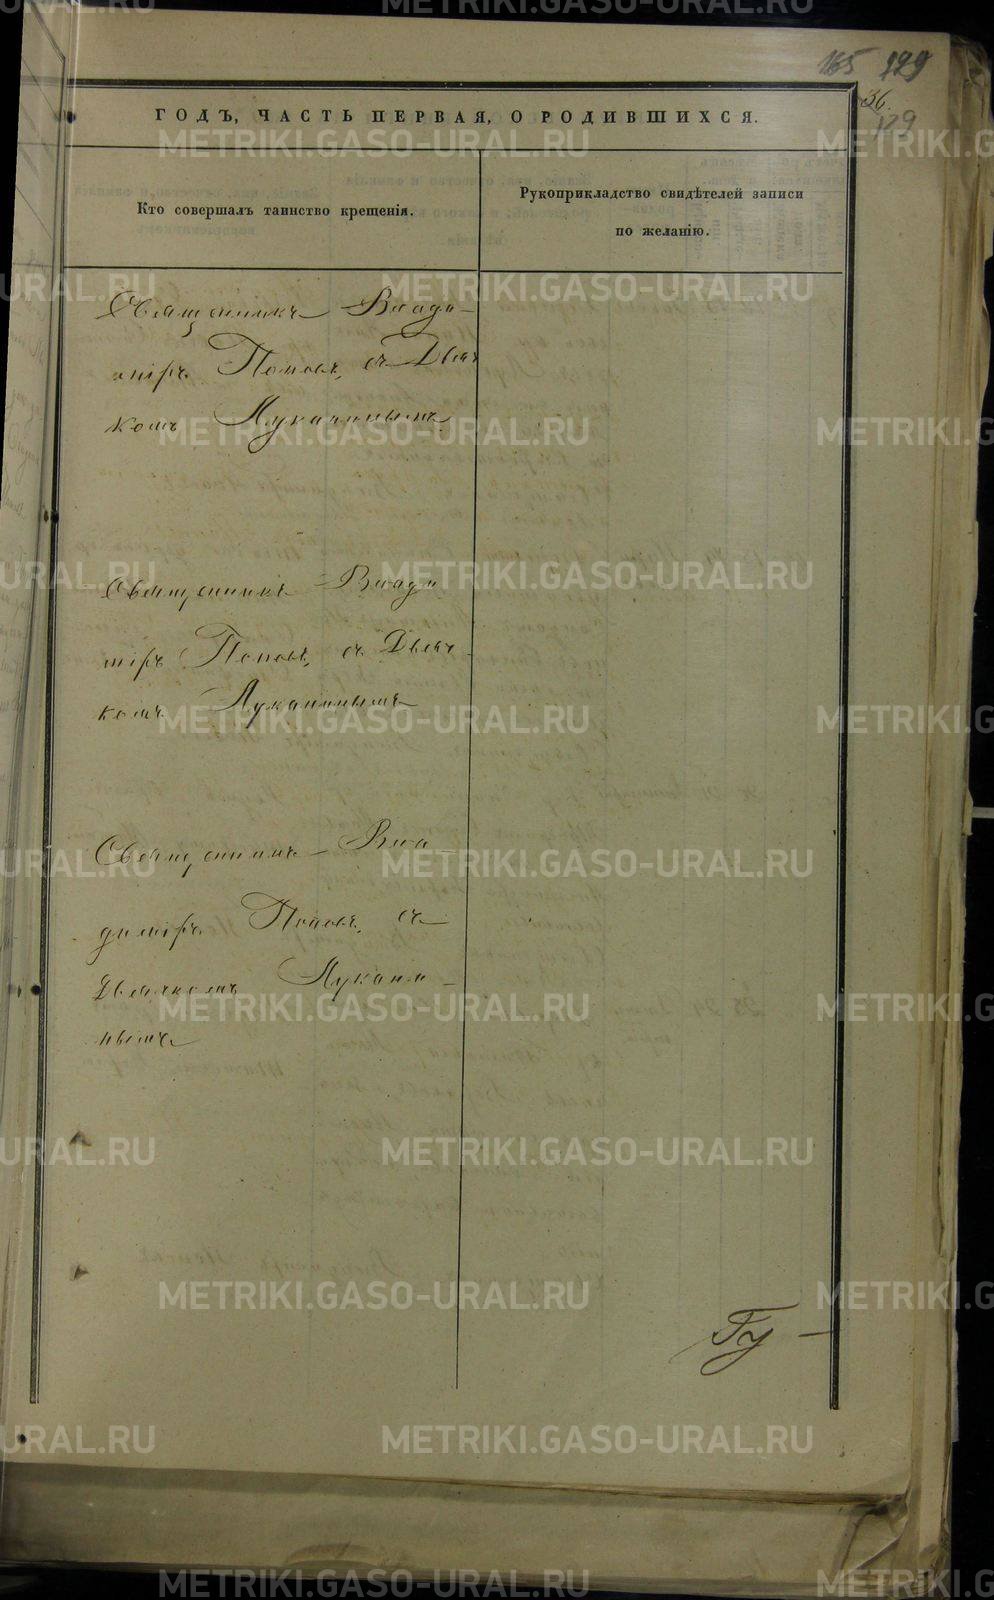 165 129
36.
129
ГОДЪ, ЧАСТЬ ПЕРВАЯ, О РОДИВШИХСЯ.
Кто совершалъ таинство крещенія.
Рукоприкладство свидѣтелей записи
по желанію.
Священникъ Влади-
міръ Поповъ, съ Дьяч
комъ Луканинымъ
Священникъ Влади
міръ Поповъ, съ Дьяч
комъ Луканинымъ
Священникъ Вла-
диміръ Поповъ, съ
Дьячкомъ Лукани-
нымъ
Гу-
METRIKI.GASO-URAL.RU